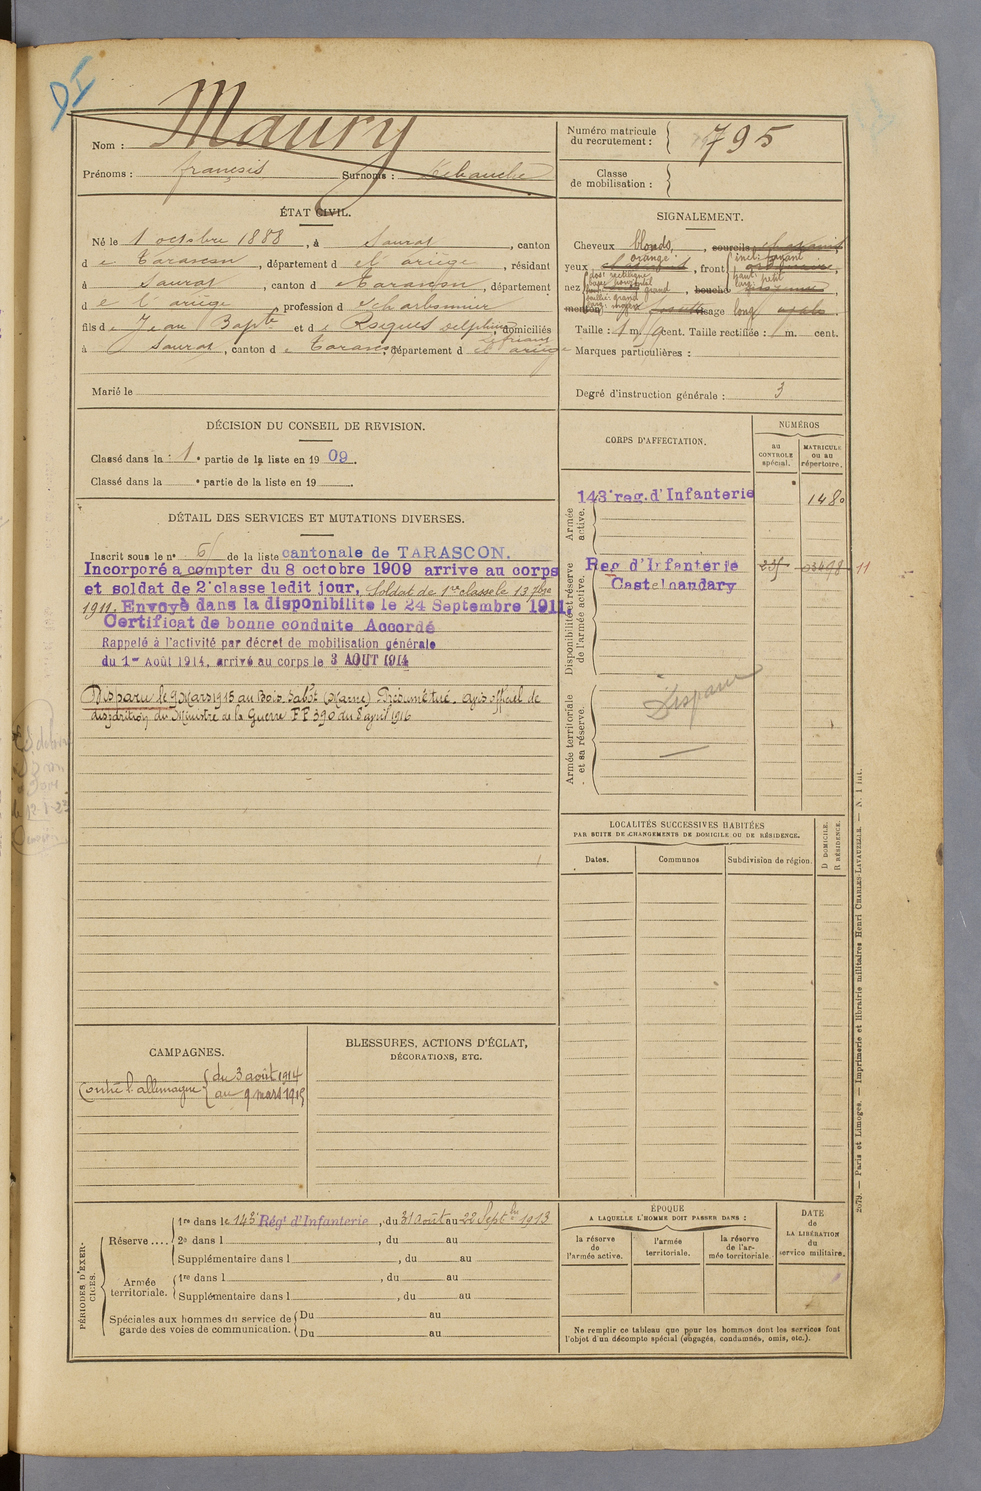 Maury
Nom :
Prénoms : françois Surnoms :
Numéro matricule du recrutement : 795
Classe de mobilisation :
ÉTAT CIVIL.
Né le 1 octobre 1888, à Saurat, canton
de Tarascon, département de l'ariège, résidant
à Saurat, canton de Tarascon, département
de l'ariège profession d charbonnier
fils de Jean Bapte et de Roques Delphine, domiciliés
à Saurat, canton de Tarascon, département de l'ariège
Marié le
SIGNALEMENT.
Cheveux blonds, sourcils
yeux orangé, front incl: fuyant
haut: petit
nez dos: rectiligne grand, bouche
menton visage long
Taille : 1 m. cent. Taille rectifiée : 1 m. cent.
Marques particulières :
Degré d'instruction générale : 3
DÉCISION DU CONSEIL DE REVISION.
Classé dans la 1e partie de la liste en 1909.
Classé dans la e partie de la liste en 19
CORPS D'AFFECTATION.
NUMÉROS
au CONTROLE spécial.
MATRICULE ou au répertoire.
Armée active.
143e reg. d'Infanterie 1480
Disponibilité et réserve de l'armée active.
Reg d'Infanterie
Castelnaudary
11
Armée territoriale et sa réserve.
Disparu
DÉTAIL DES SERVICES ET MUTATIONS DIVERSES.
Inscrit sous le no 61 de la liste cantonale de TARASCON.
Incorporé a compter du 8 octobre 1909 arrive au corps
et soldat de 2e classe ledit jour. Soldat de 1re classe le 13 7bre
1911. Envoyé dans la disponibilité le 24 Septembre 1911.
Certificat de bonne conduite Accordé
Rappelé à l'activité par décret de mobilisation générale
du 1er Août 1914, arrivé au corps le 3 AOUT 1914
Disparu le 9 Mars 1915 au Bois Sabot (Marne) Présumé tué. Avis officiel de
disparition du Ministre de la Guerre FF 390 du 8 avril 1916
LOCALITÉS SUCCESSIVES HABITÉES
PAR SUITE DE CHANGEMENTS DE DOMICILE OU DE RÉSIDENCE.
Dates.
Communes
Subdivision de région.
D DOMICILE.
R RÉSIDENCE.
CAMPAGNES.
Contre l'allemagne du 3 août 1914
au 9 mars 1915
BLESSURES, ACTIONS D'ÉCLAT,
DÉCORATIONS, ETC.
PÉRIODES D'EXERCICES.
Réserve ....
1re dans le 143e Régt d'Infanterie, du 31 août au 22 Septbre 1913
2e dans l , du au
Supplémentaire dans l , du au
Armée territoriale.
1re dans l , du au
Supplémentaire dans l , du au
Spéciales aux hommes du service de garde des voies de communication.
Du au
Du au
ÉPOQUE
A LAQUELLE L'HOMME DOIT PASSER DANS :
la réserve de l'armée active.
l'armée territoriale.
la réserve de l'armée territoriale.
DATE de LA LIBÉRATION du service militaire.
Ne remplir ce tableau que pour les hommes dont les services font
l'objet d'un décompte spécial (engagés, condamnés, omis, etc.).
2679. — Paris et Limoges. — Imprimerie et librairie militaires Henri CHARLES-LAVAUZELLE. — N. 1 int.